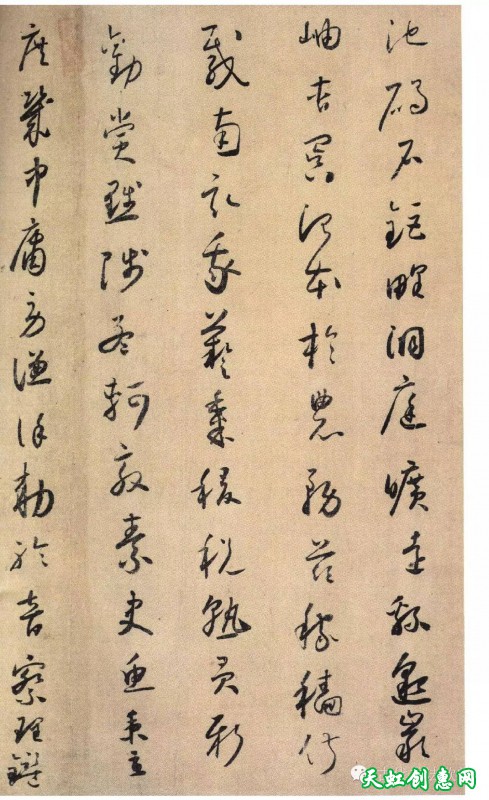 池碣石鉅野洞庭曠遠緜邈巖
岫杳冥治本於農務茲稼穡俶
載南畝我藝黍稷稅熟貢新
勸賞黜陟孟軻敦素史魚秉直
庶幾中庸勞謙謹敕聆音察理鑑
天虹创惠网